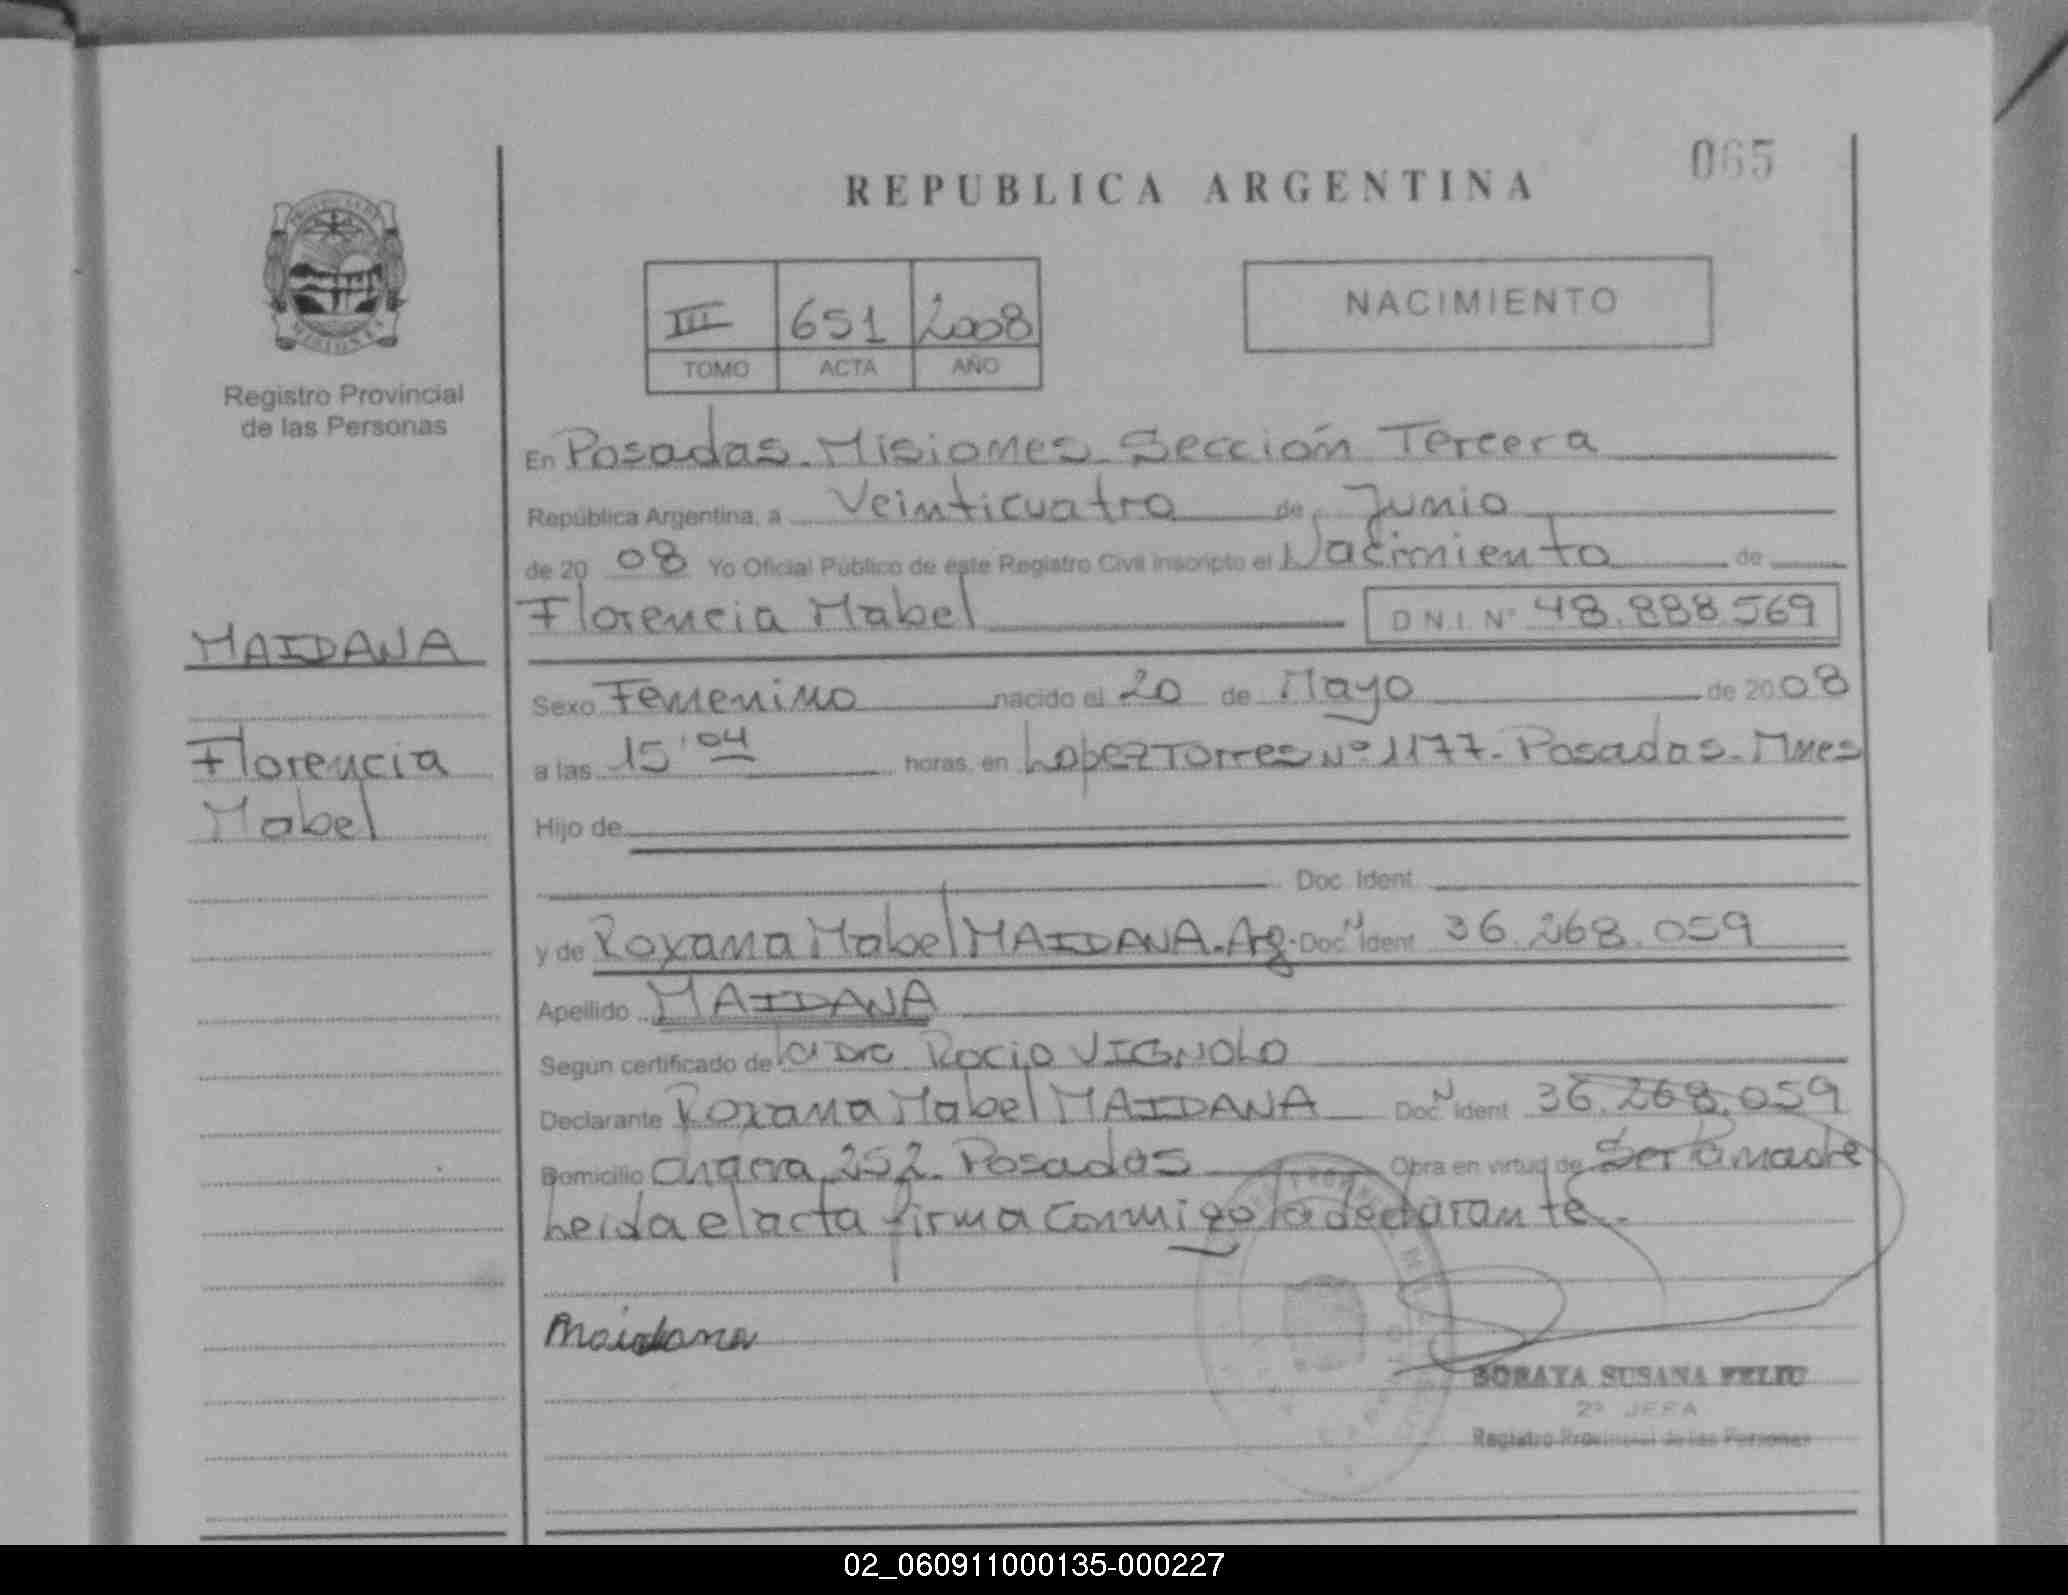 065
REPUBLICA ARGENTINA
III 651 2008
TOMO ACTA AÑO
NACIMIENTO
Registro Provincial
de las Personas
En Posadas. Misiones. Sección Tercera
República Argentina, a Veinticuatro de Junio
de 20 08 Yo Oficial Público de éste Registro Civil inscripto el Nacimiento de
Florencia Mabel D.N.I. Nº 48.888.569
MAIDANA
Sexo Femenino nacido el 20 de Mayo de 2008
Florencia
a las 15'04 horas, en Lopez Torres Nº 1177. Posadas. Mnes
Mabel
Hijo de
Doc. Ident.
y de Roxana Mabel MAIDANA. Arg. Doc. N Ident 36.268.059
Apellido MAIDANA
Según certificado de la Dra. Rocio VIGNOLO
Declarante Roxana Mabel MAIDANA Doc. N Ident 36.268.059
Domicilio 252. Posadas Obra en virtud de Ser la madre
Leida el acta firma conmigo la declarante.
Maidana
SORAYA SUSANA FELIU
2ª JEFA
Registro Provincial de las Personas
02_060911000135-000227